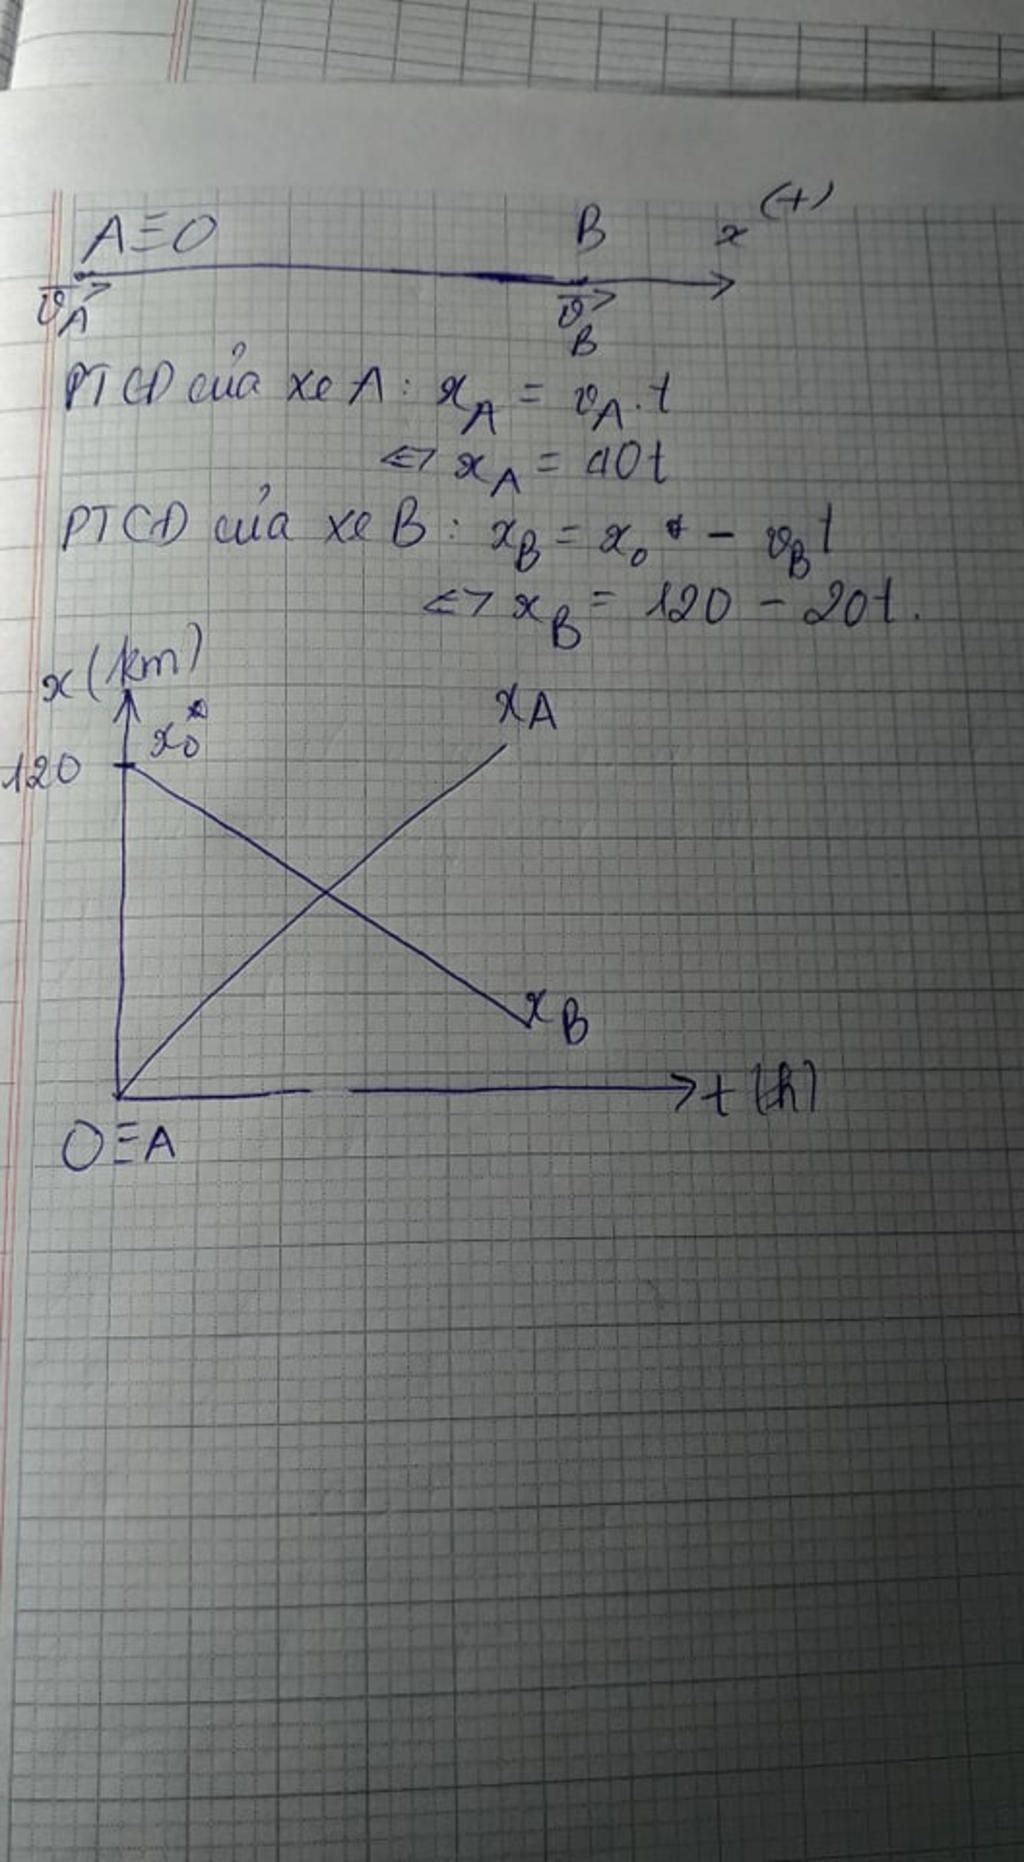 A≡O B x (+)
v⃗A v⃗B
PTCĐ của xe A: xA = vA.t
<=> xA = 40t
PTCĐ của xe B: xB = x0 - vBt
<=> xB = 120 - 20t.
x(km)
x0 xA
120
xB
t (h)
O≡A